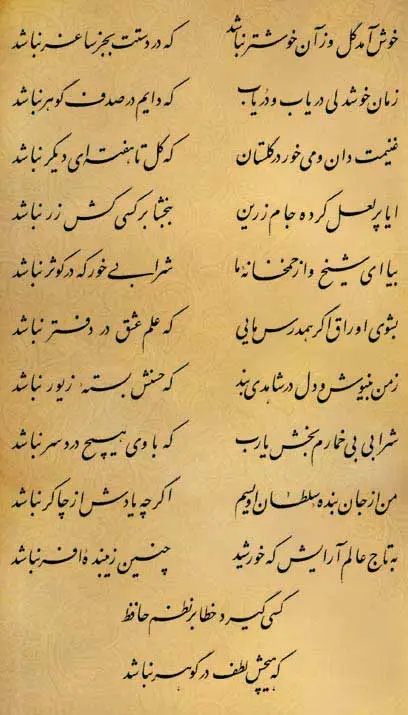 خوش آمد گل وزآن خوشتر نباشد که در دستت بجز ساغر نباشد
زمان خوشدلی دریاب و دریاب که دایم در صدف گوهر نباشد
غنیمت دان و می خور در گلستان که گل تا هفته ای دیگر نباشد
ایا پرلعل کرده جام زرین ببخشا بر کسی کش زر نباشد
بیا ای شیخ و از خمخانهٔ ما شرابی خور که در کوثر نباشد
بشوی اوراق اگر همدرس مایی که علم عشق در دفتر نباشد
زمن بنیوش و دل در شاهدی بند که حسنش بستهٔ زیور نباشد
شرابی بی خمارم بخش یارب که با وی هیچ درد سر نباشد
من از جان بنده سلطان اویسم اگر چه یادش از چاکر نباشد
به تاج عالم آرایش که خورشید چنین زیبندهٔ افسر نباشد
کسی گیرد خطا بر نظم حافظ
که هیچش لطف در گوهر نباشد